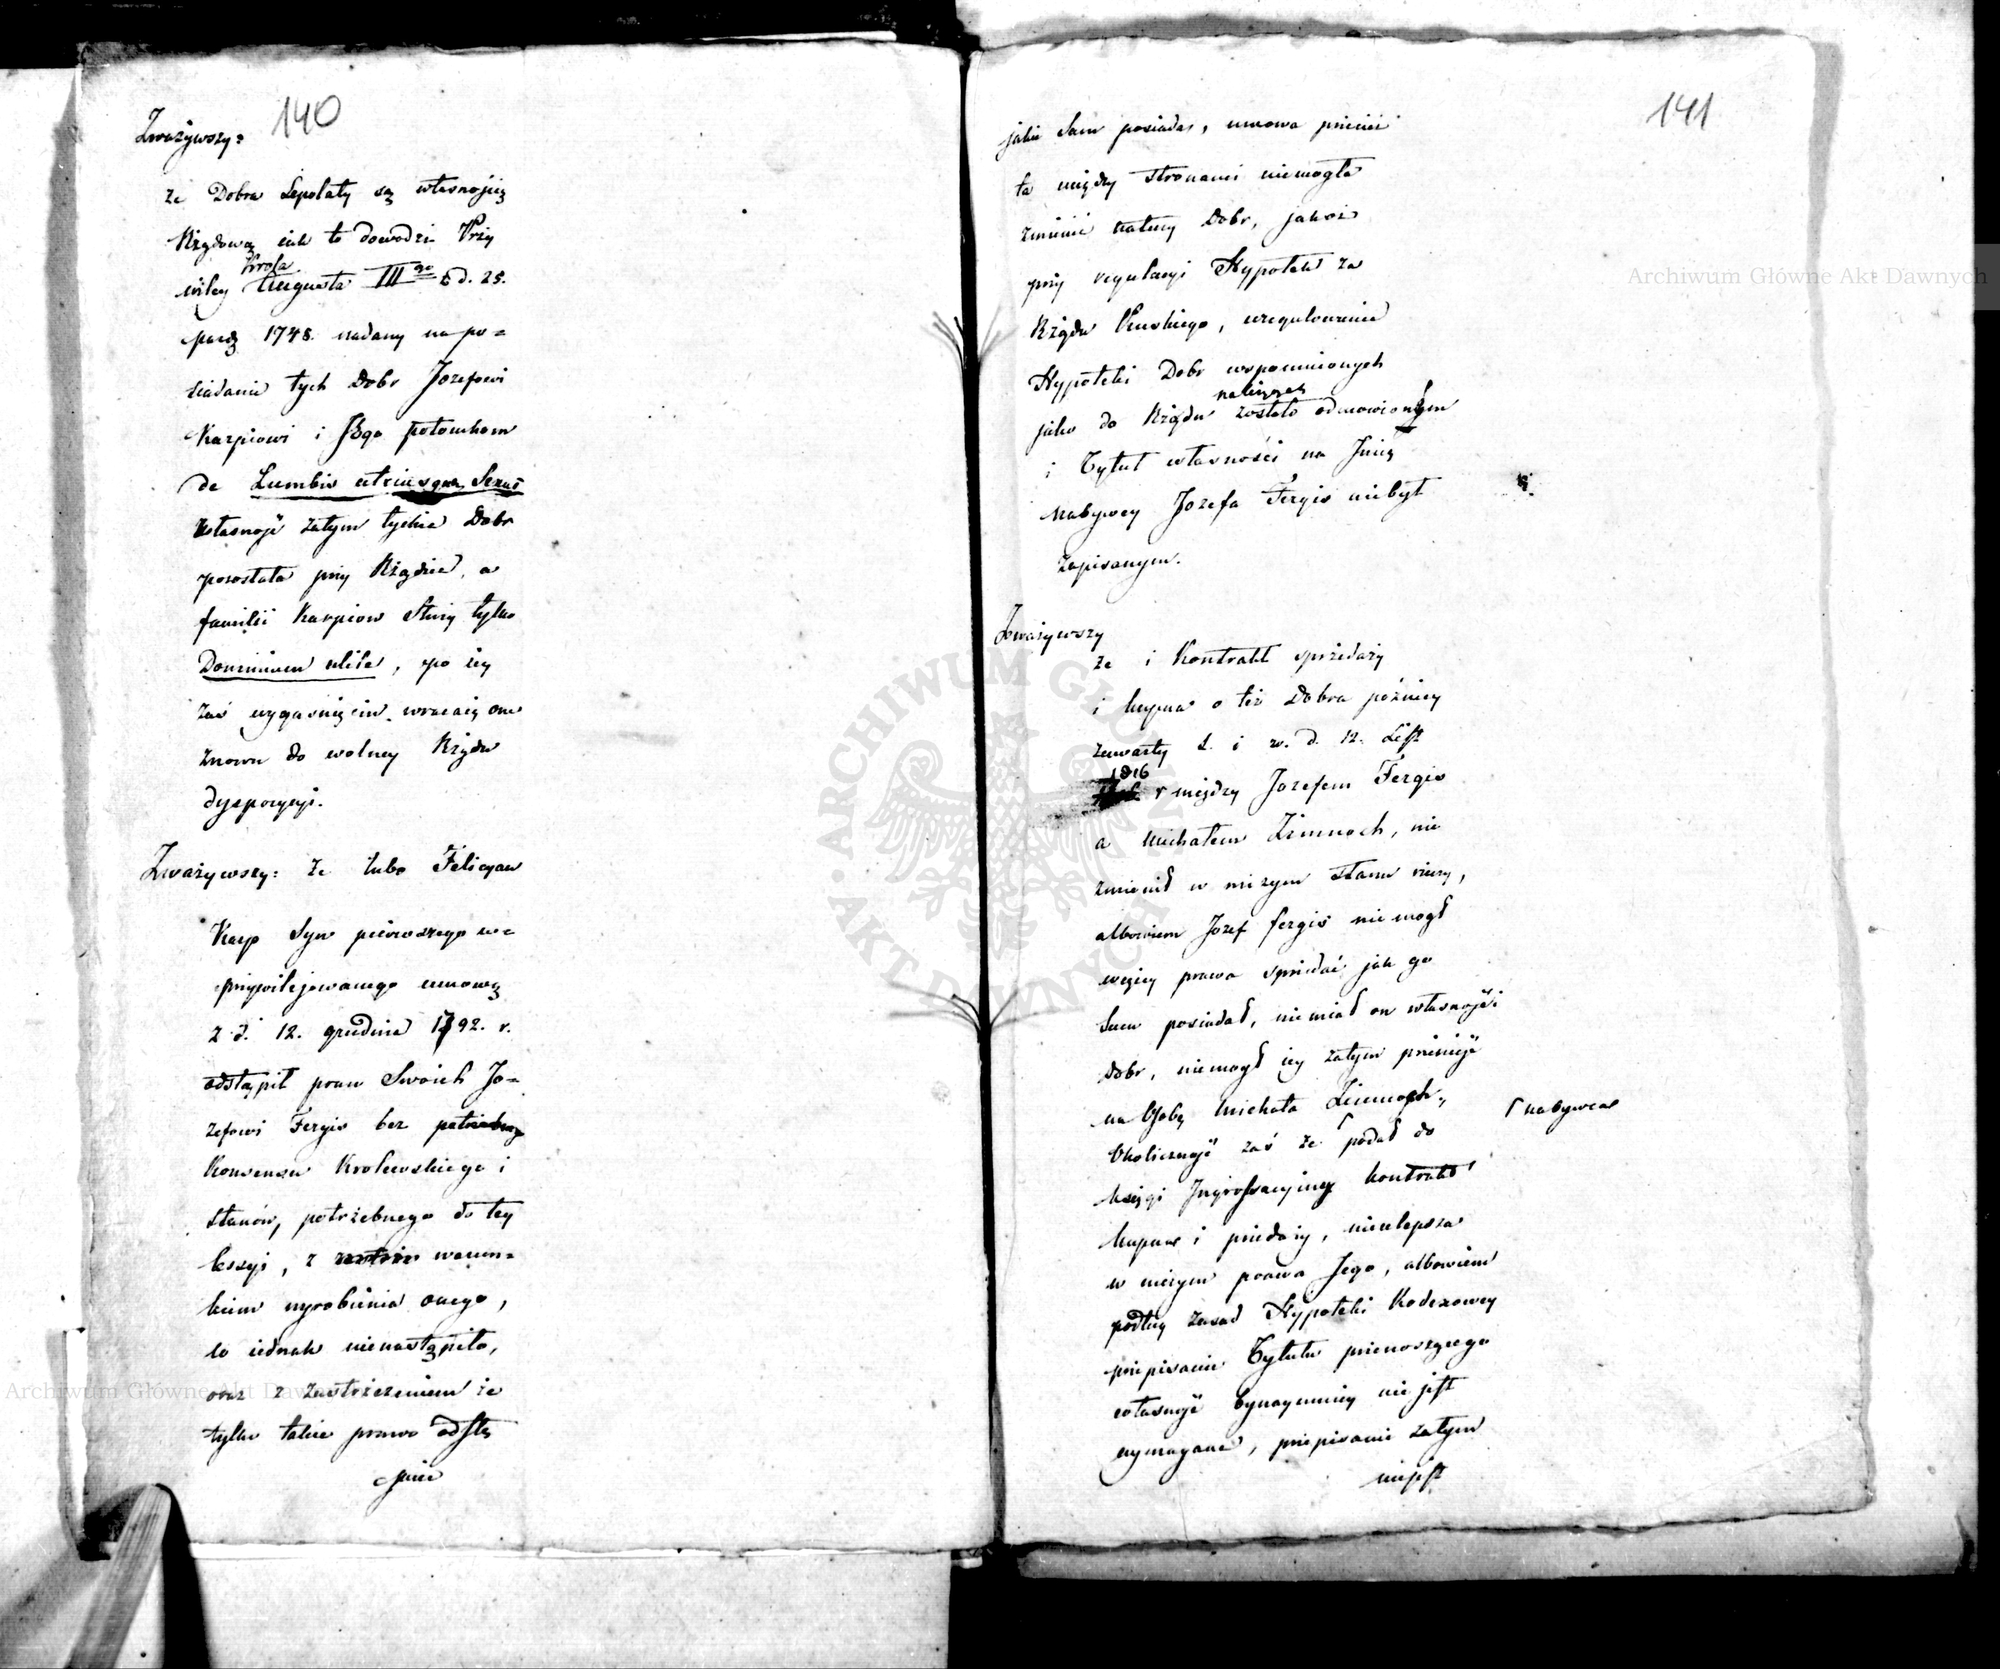 140
Zważywszy:
że Dobra Lepolaty są własnością
Rządową iak to dowodzi Przy
Krola
wiley Augusta III go d. d. 25.
pazdz 1748. nadany na po=
siadanie tych Dobr Jozefowi
Karpiowi i Jego potomkom
de Lumbis utriusque Sexus
własność zatym tychże Dobr
pozostała przy Rządzie, a
familii Karpiow służy tylko
Dominium utile, po iey
zaś wygaśnięciu wracaią one
znowu do wolney Rządu
dyspozycyi.
Zważywszy: że lubo Felicyan
Karp Syn pierwszego u=
przywilejowanego umową
z d. 12. grudnia 1792. r.
odstąpił praw Swoich Jo=
zefowi Fergis bez
Konsensu Krolewskiego i
Stanów, potrzebnego do tey
cessyi, z warun=
kiem wyrobienia onego,
co iednak nienastąpiło,
oraz z zastrzeżeniem że
tylko takie prawo odstę
puie
141
jakie Sam posiada, umowa przecież
ta między stronami niemogła
zmienić natury Dobr, jakoż
przy regulacyi Hypotek za
Rządu Pruskiego, uregulowanie
Hypoteki Dobr wspomnionych
należących
jako do Rządu zostało odmowionym
i Tytuł własności na Imię
nabywcy Jozefa Fergis niebył
zapisanym.
Zważywszy
że i Kontrakt sprzedaży
i kupna o też Dobra pożniey
zawarty d. 12. List
1816
r między Jozefem Fergis
a Michałem Zimnoch, nie
zmienił w niczym stanu rzeczy,
albowiem Jozef Fergis nie mogł
więcey prawa sprzedać jak go
Sam posiadał, nie miał on własności
Dobr, niemogł iey zatym przenieść
na Osobę Michała Zimnoch,
Okoliczność zaś że podał do
nabywca
księgi Ingrossacyiney kontrakt
kupna i przedaży, nieulepsza
w niczym prawa Jego, albowiem
podług zasad Hypoteki Kodexowey
przepisanie Tytułu przenoszącego
własność bynaymniey nie jest
wymagane, przepisanie zatym
niejest
Archiwum Główne Akt Dawnych
Archiwum Główne Akt Dawnych
ARCHIWUM GŁÓWNE AKT DAWNYCH